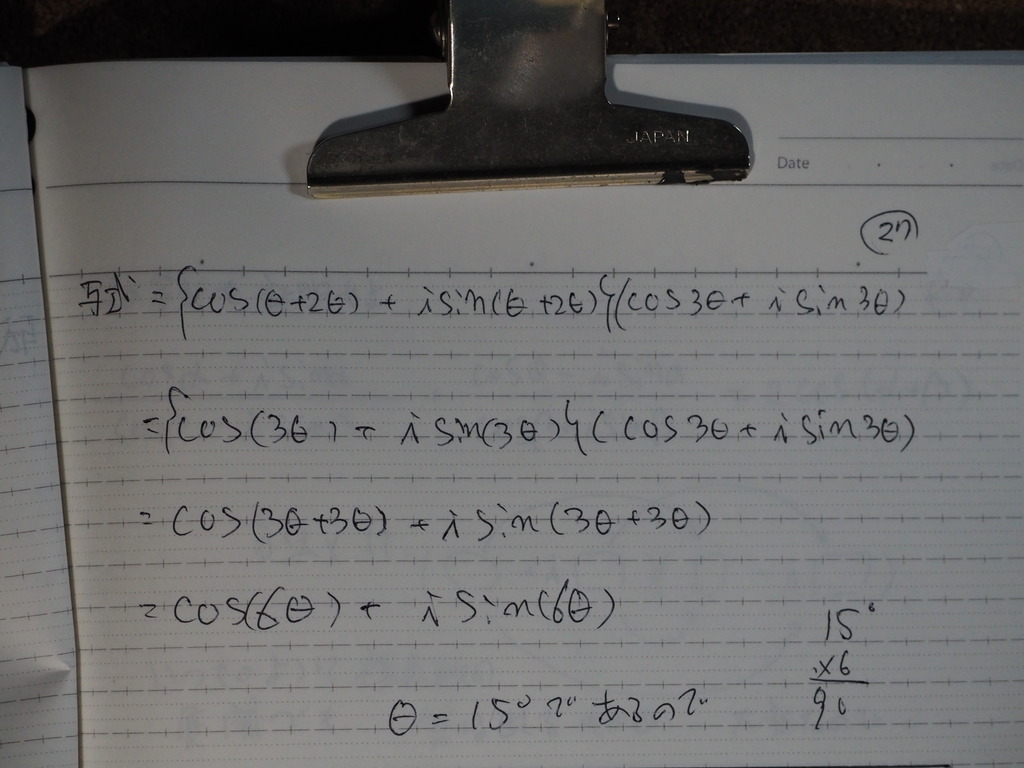 JAPAN
Date
27
与式 = {cos(θ+2θ) + i sin(θ+2θ)}(cos3θ + i sin3θ)
= {cos(3θ) + i sin(3θ)}(cos3θ + i sin3θ)
= cos(3θ+3θ) + i sin(3θ+3θ)
= cos(6θ) + i sin(6θ)
15°
×6
90
θ = 15° であるので